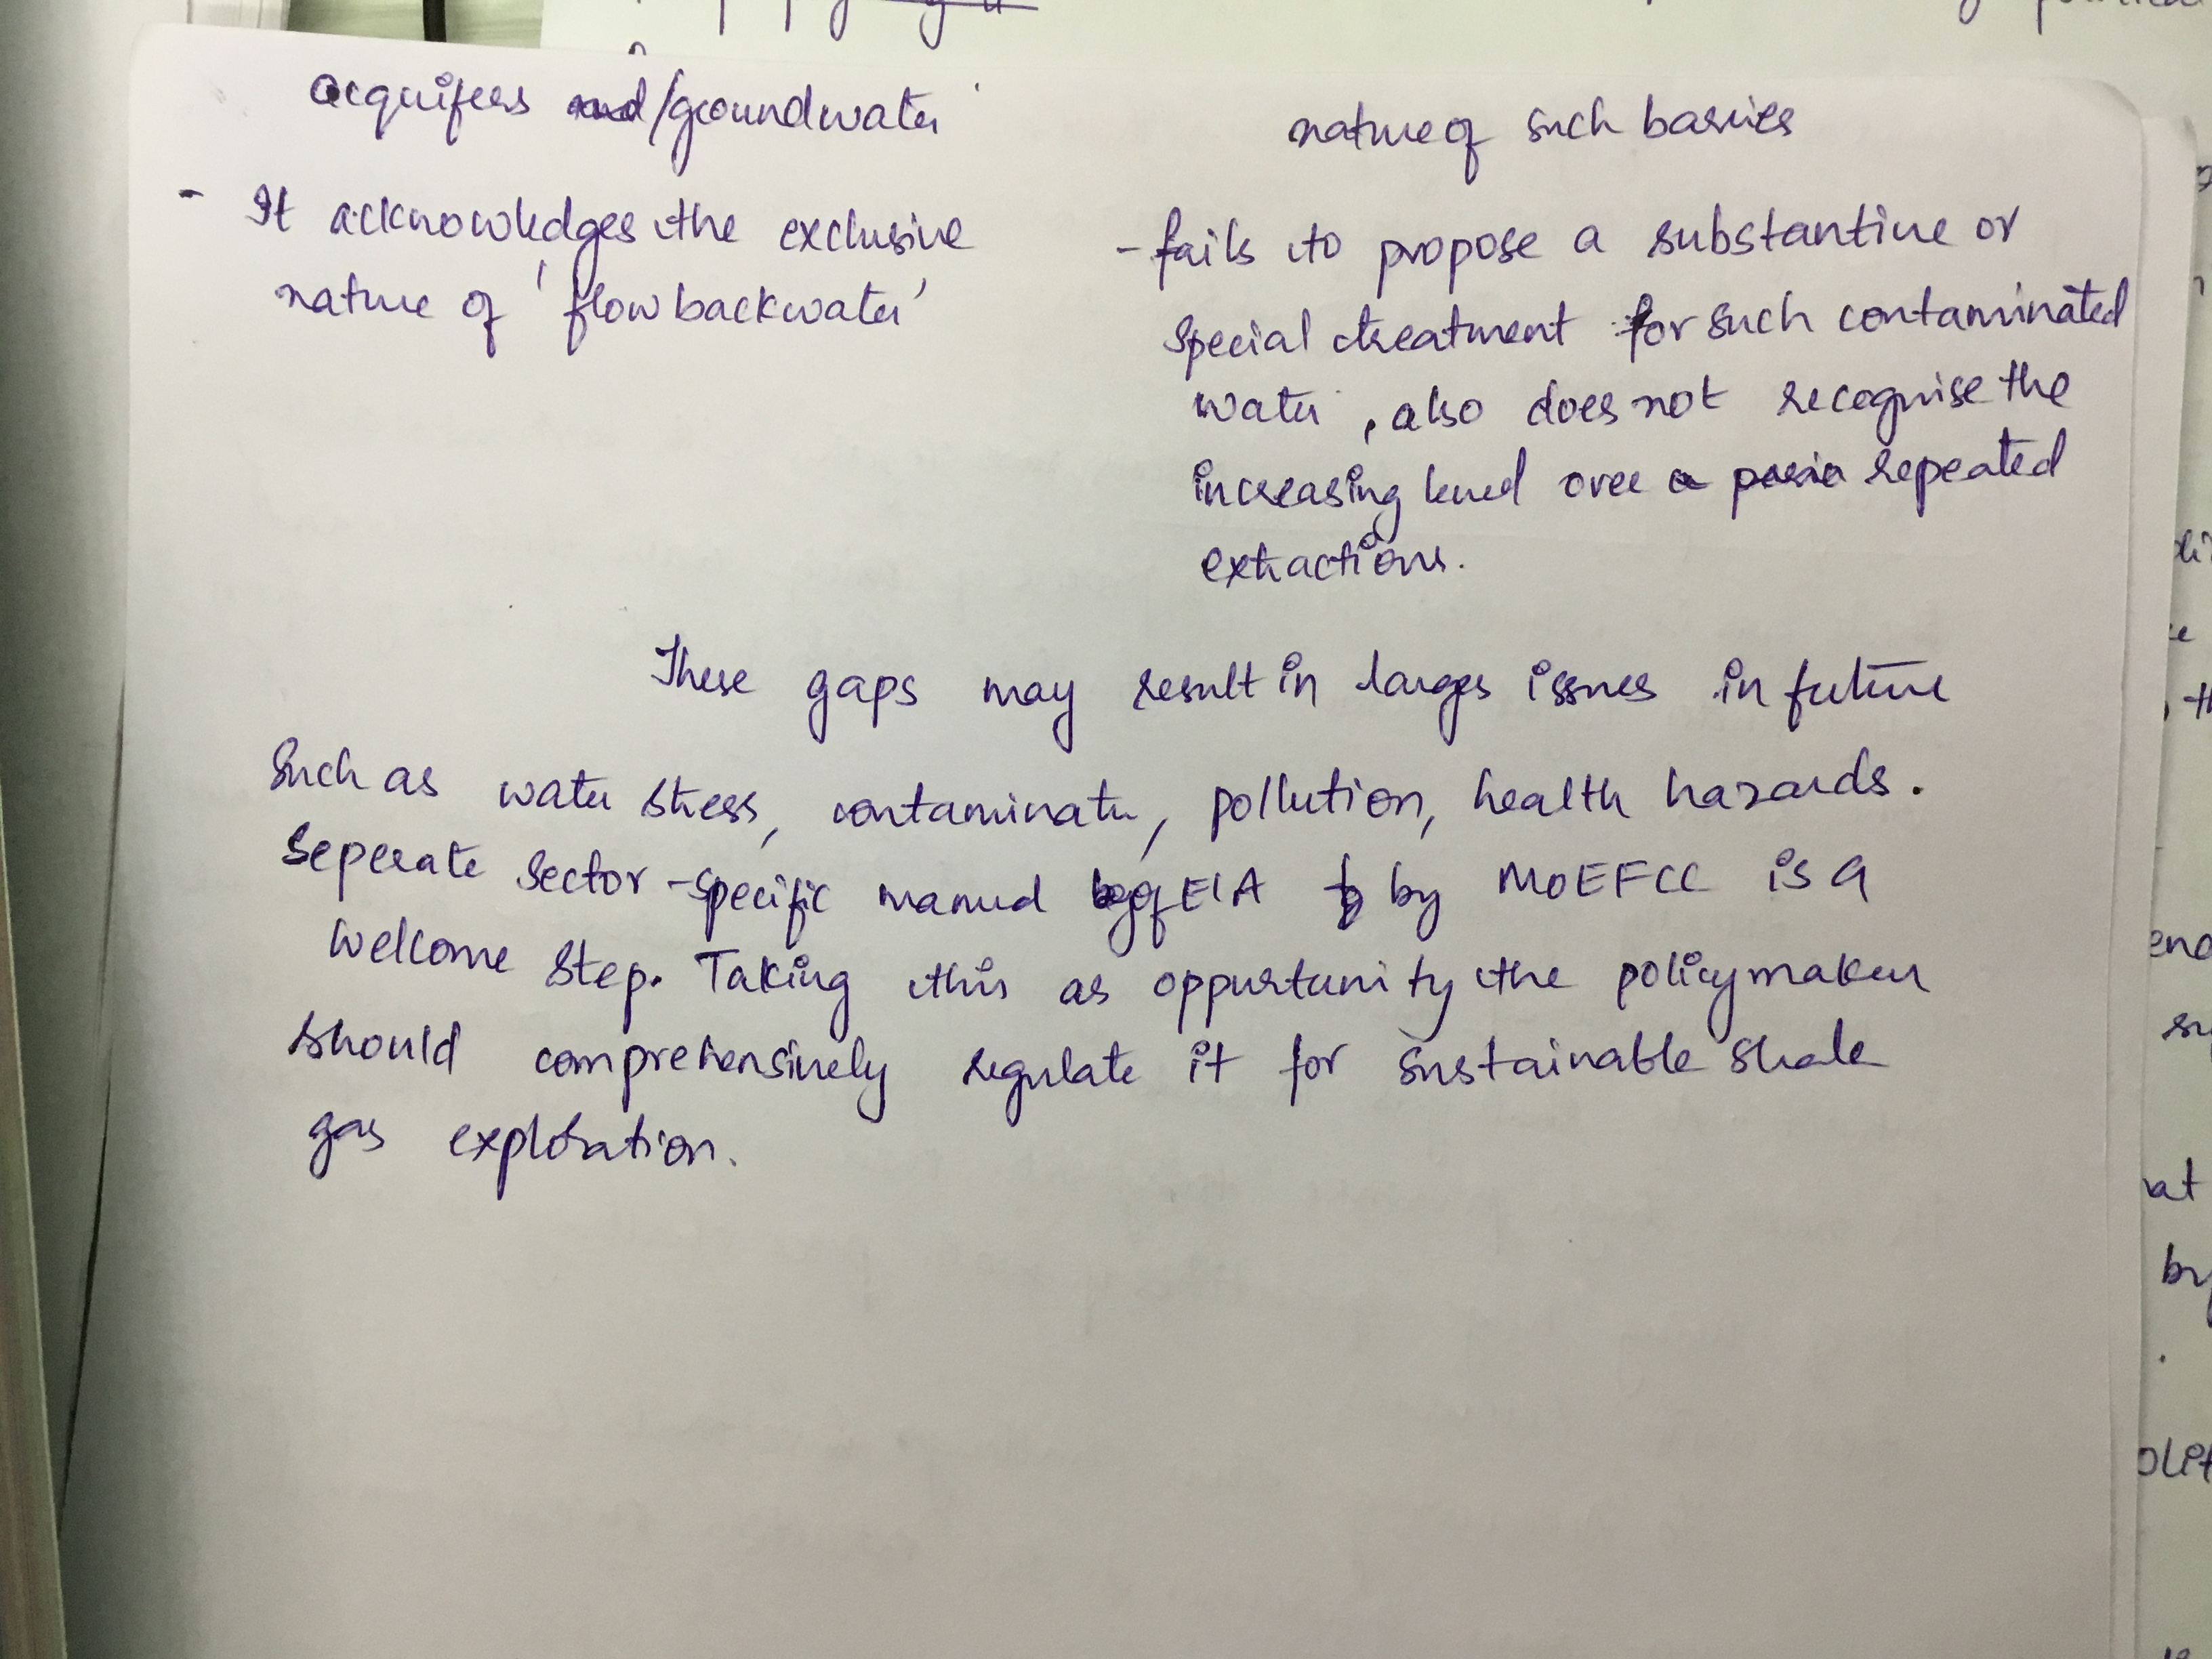 acquifers and/groundwater
- It acknowledges the exclusive
nature of 'flowbackwater'
nature of such barries
- fails to propose a substantive or
special treatment for such contaminated
water, also does not recognise the
increasing level over a repeated
extractions.
These gaps may result in larger issues in future
such as water stress, contaminate, pollution, health hazards.
Seperate sector-specific manual of EIA by MoEFCC is a
welcome step. Taking this as oppurtunity the policymaker
should comprehensively regulate it for sustainable shale
gas exploration.